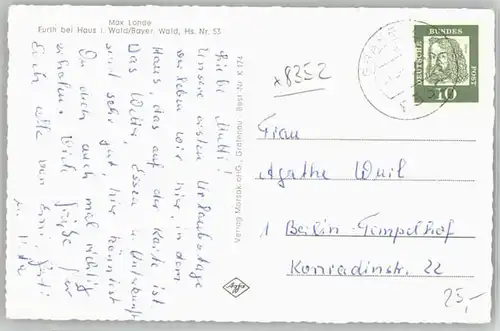 Max Lande
Furth bei Haus i. Wald/Bayer. Wald, Hs. Nr. 53
Liebe Mutti!
Unsere ersten Urlaubstage
erleben wir hier, in dem
Haus, das auf der Karte ist.
Das Wetter, Essen u. Unterkunft
sind sehr gut, hier könntest
Du dich auch mal richtig
erholen. Viele Grüße für
Euch alle von
Verlag Morsak oHG., Grafenau
Best.-Nr.
x8352
DEUTSCHE BUNDESPOST
10
Frau
Agathe Weil
1 Berlin-Tempelhof
Konradinstr. 22
25,-
Agfa